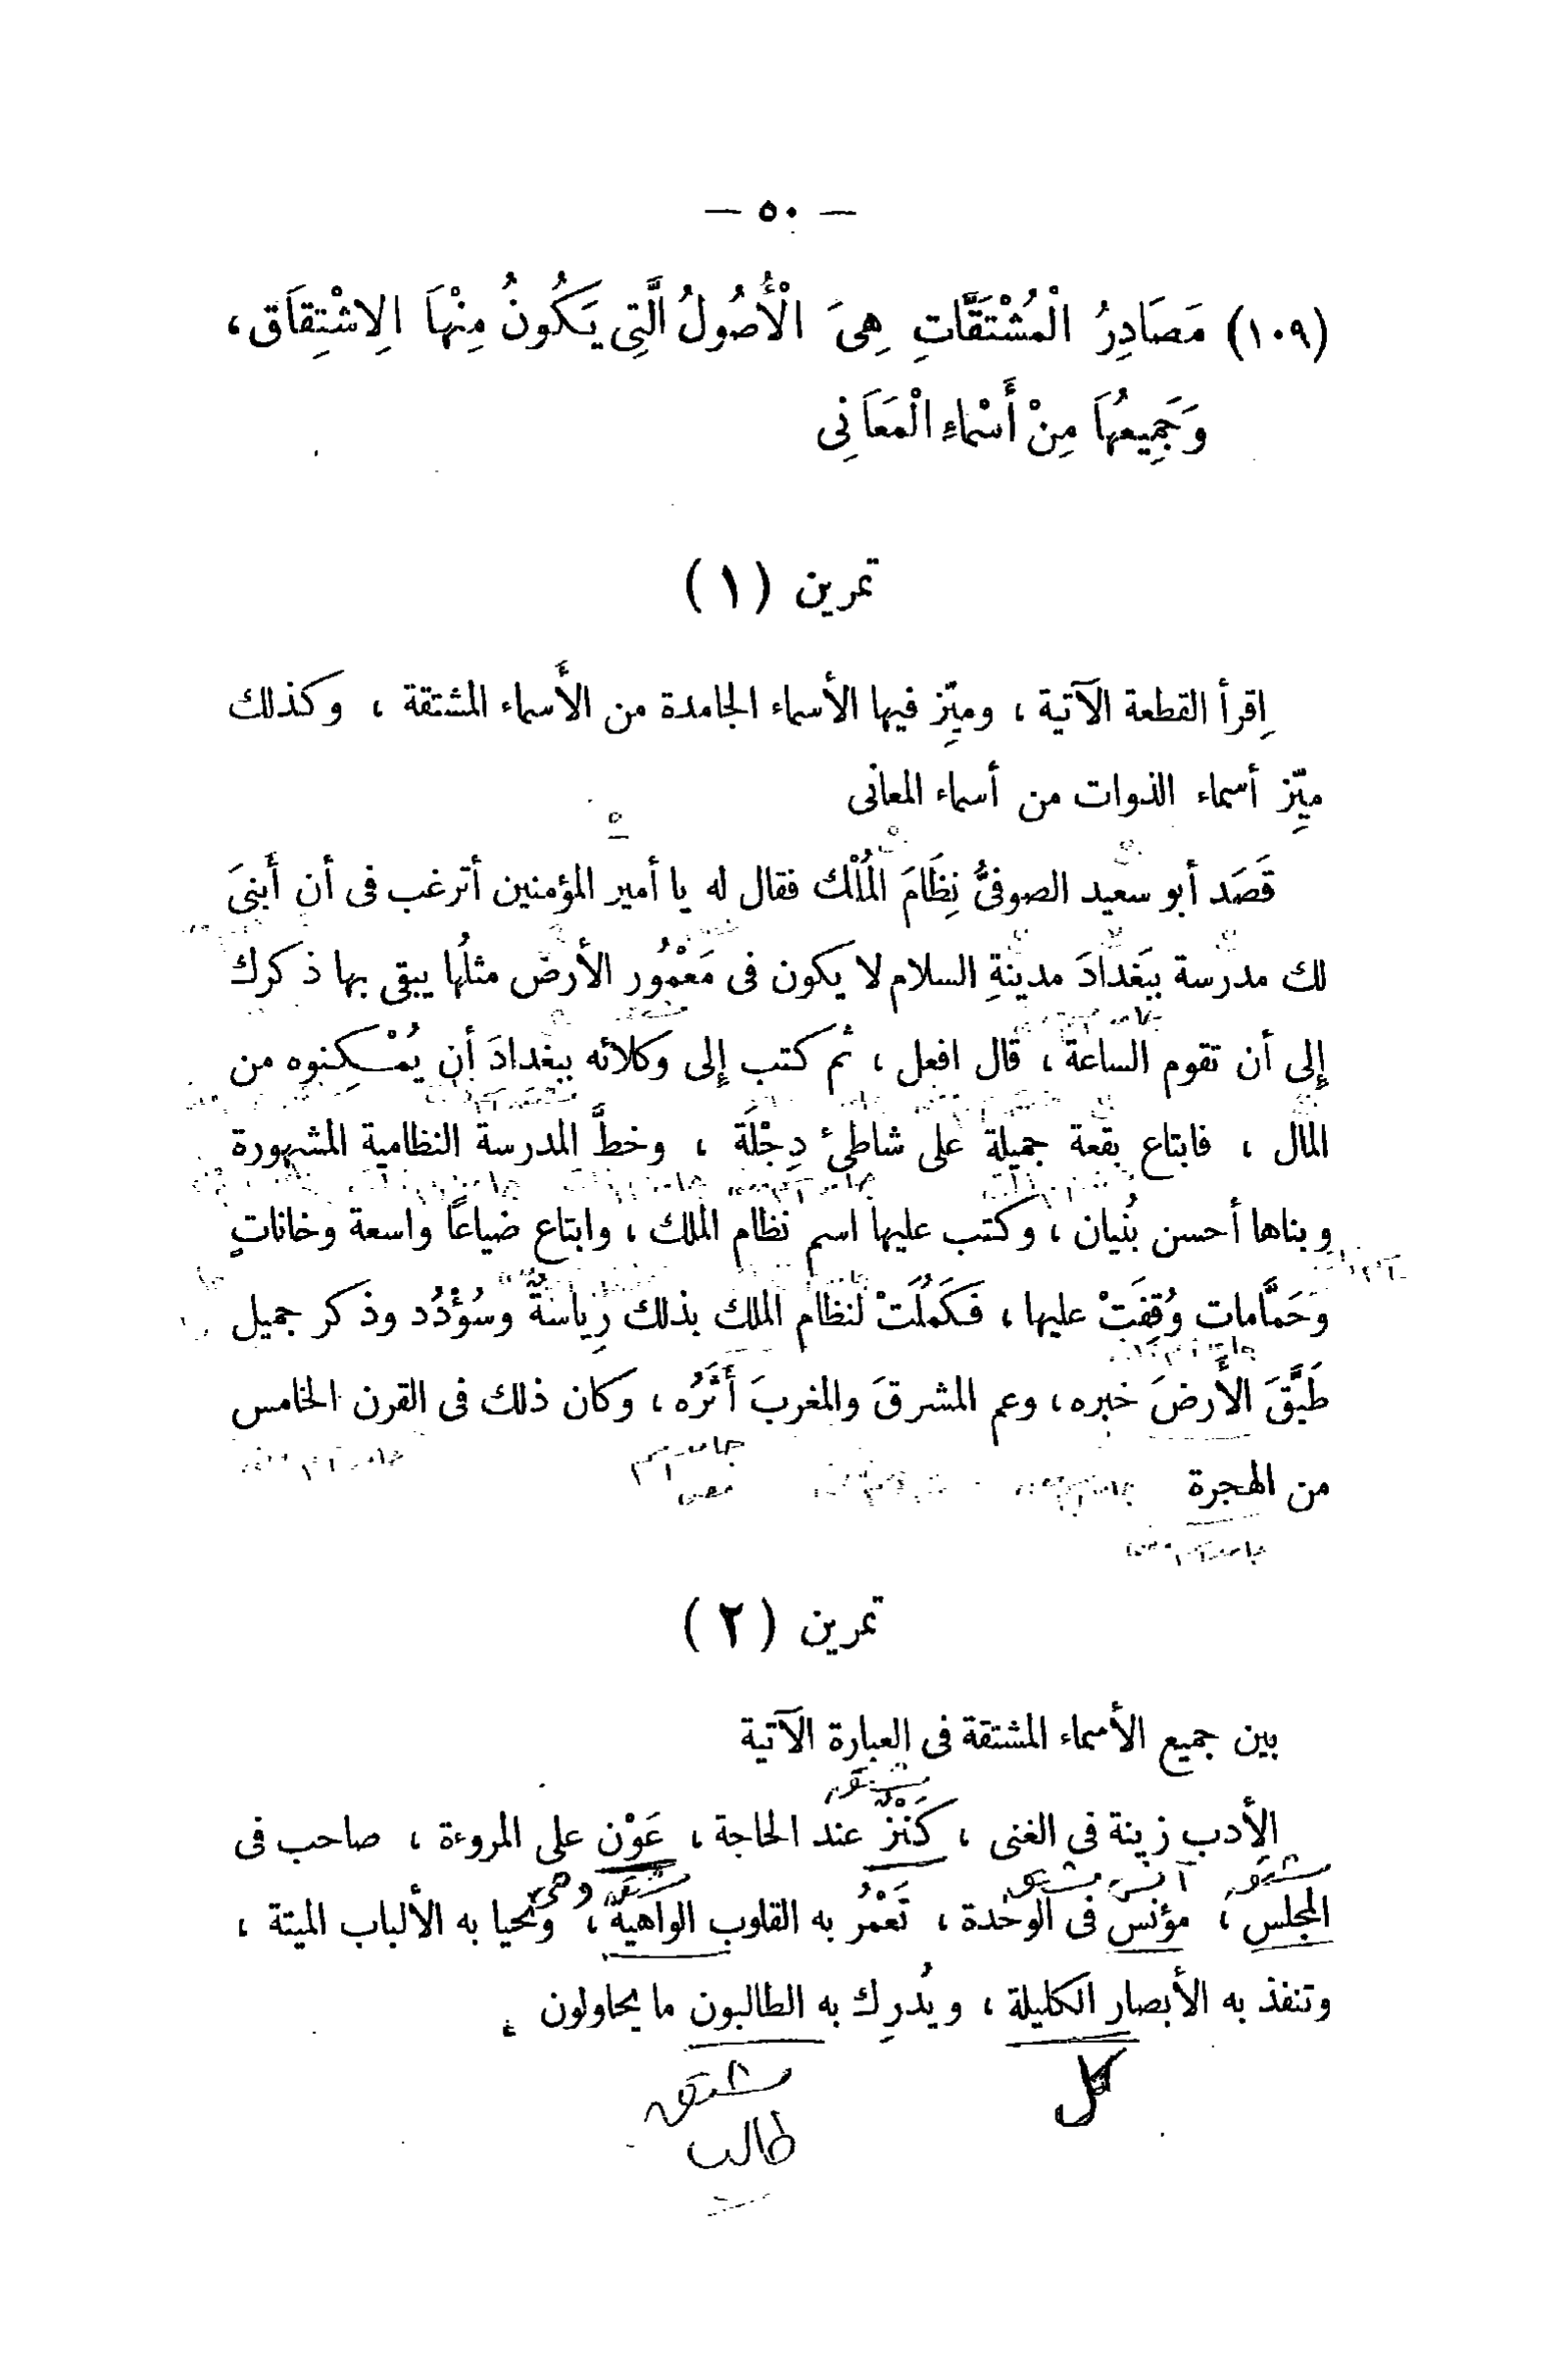 — ٥٠ —
(١٠٩) مَصَادِرُ الْمُشْتَقَّاتِ هِىَ الْأُصُولُ الَّتِى يَكُونُ مِنْهَا الِاشْتِقَاق،
وَجَمِيعُهَا مِنْ أَسْمَاءِ الْمَعَانِى
تمرين (١)
اِقرأ القطعة الآتية ، وميِّز فيها الأسماء الجامدة من الأَسماء المشتقة ، وكذلك
ميِّز أسماء الذوات من أسماء المعانى
قَصَد أبو سعيد الصوفىُّ نِظَامَ الْمُلْك فقال له يا أمير المؤمنين أترغب فى أن أَبنىَ
لك مدرسة ببَغدادَ مدينةِ السلام لا يكون فى مَعْمُور الأرض مثلُها يبقى بها ذكرك
إلى أن تقوم الساعة ، قال افعل ، ثم كتب إلى وكلائه ببغدادَ أن يُمْكِنوه من
المال ، فابتاع بقعة جميلة على شاطئ دِجْلَة ، وخطَّ المدرسة النظامية المشهورة
وبناها أحسن بُنيان ، وكتب عليها اسم نظام الملك ، وابتاع ضياعًا واسعة وخاناتٍ
وَحَمَّامات وُقِفَتْ عليها ، فكَمُلَتْ لنظام الملك بذلك رِياسةٌ وسُؤْدُد وذكر جميل
طَبَّقَ الأَرضَ خبره ، وعم المشرقَ والمغربَ أَثَرُه ، وكان ذلك فى القرن الخامس
من الهجرة
تمرين (٢)
بين جميع الأسماء المشتقة فى العبارة الآتية
مشتق
الأدب زينة فى الغنى ، كَنْزٌ عند الحاجة ، عَوْن على المروءة ، صاحب فى
مشتق آنس مشتق مشتق وهى
المجلس ، مؤنس فى الوحدة ، تَعْمُر به القلوب الواهية ، وتحيا به الألباب الميتة ،
وتنفذ به الأبصار الكليلة ، ويُدرِك به الطالبون ما يحاولون
كل
مشتق
طالب